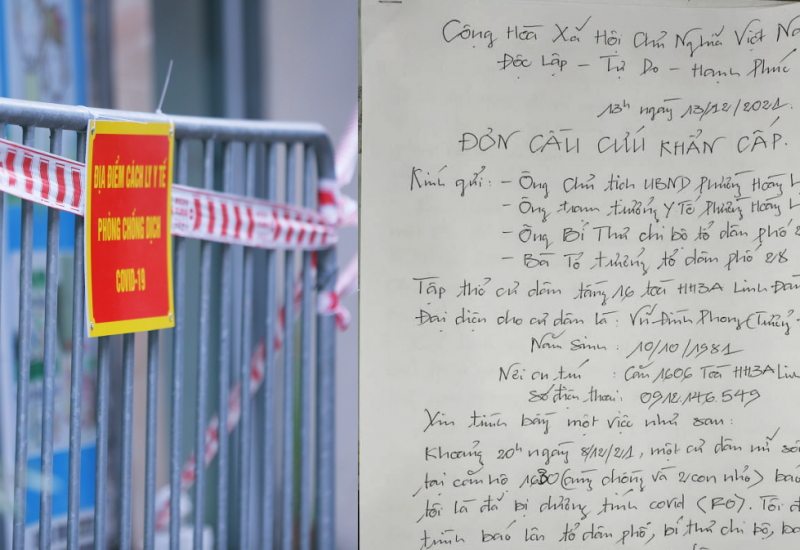 ĐỊA ĐIỂM CÁCH LY Y TẾ
PHÒNG CHỐNG DỊCH
COVID-19
Cộng Hòa Xã Hội Chủ Nghĩa Việt Na
Độc Lập - Tự Do - Hạnh Phúc
13h ngày 13/12/2021.
ĐƠN CẦU CỨU KHẨN CẤP.
Kính gửi: - Ông Chủ tịch UBND Phường Hoàng L
- Ông trạm trưởng Y Tế Phường Hoàng L
- Ông Bí Thư chi bộ tổ dân phố 2
- Bà Tổ trưởng tổ dân phố 28
Tập thể cư dân tầng 16 toà HH3A Linh Đàm
Đại diện cho cư dân là: Vũ Đình Phong (Trưởng
Năm Sinh: 10/10/1981
Nơi cư trú : Căn 1606 Toà HH3A Linh
Số điện thoại: 0912.146.549
Xin trình bày một việc như sau:
Khoảng 20h ngày 8/12/21, một cư dân nữ số
tại căn hộ 1630 (cùng chồng và 2 con nhỏ) báo
tôi là đã bị dương tính covid (F0). Tôi đ
trình báo lên tổ dân phố, bí thư chi bộ, ba